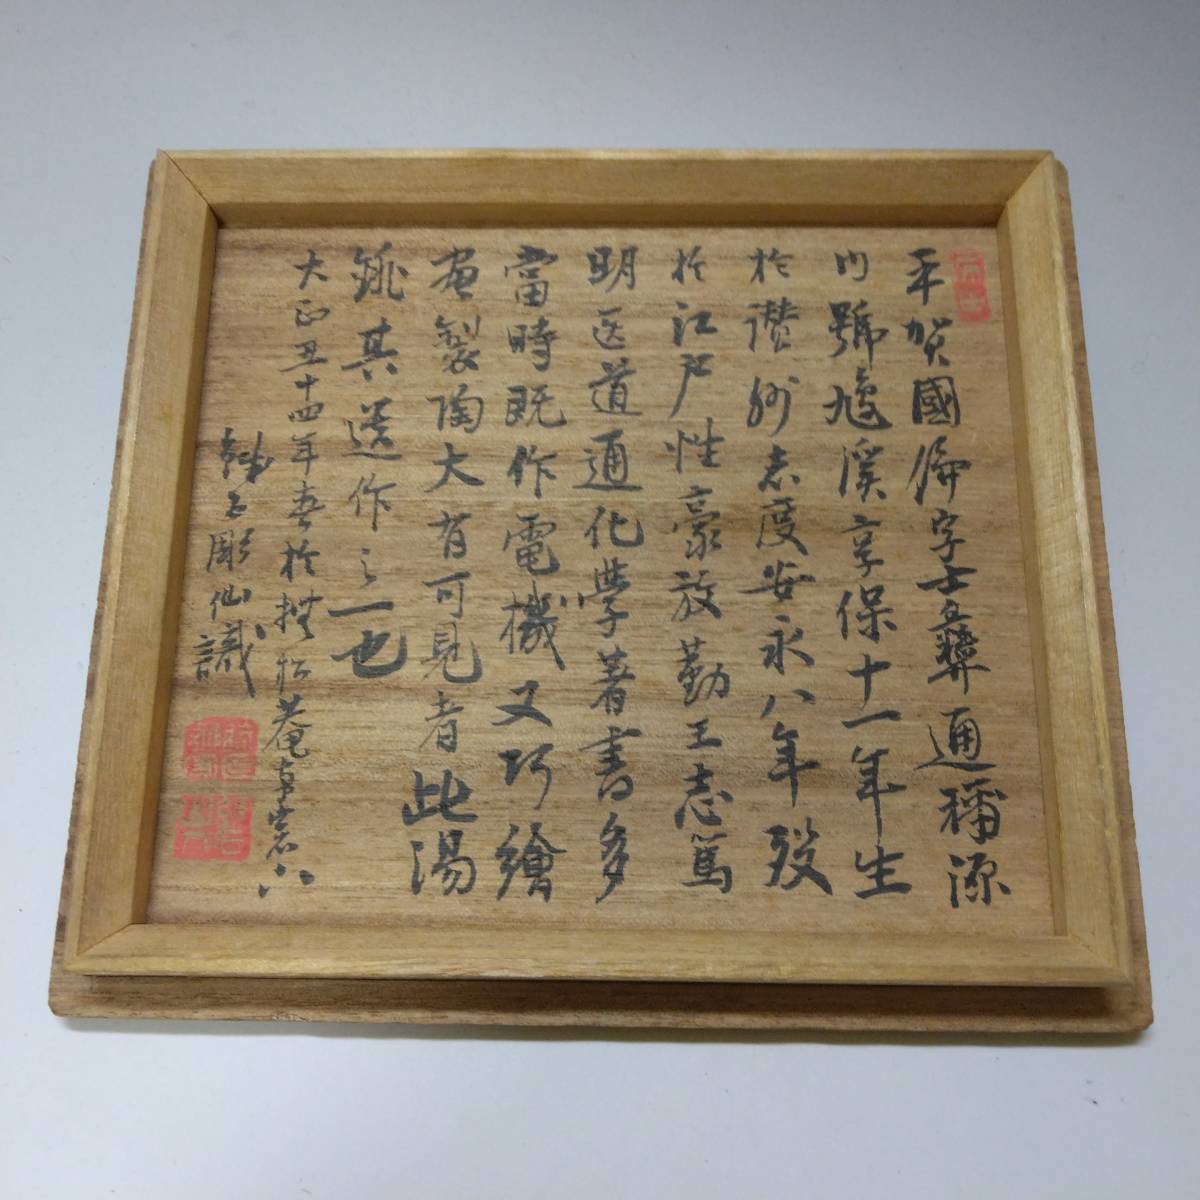 平賀國倫字士彝通稱源
内號鳩溪享保十一年生
於讃州志度安永八年歿
於江戸性豪放勤王志篤
明医道通化學著書多
當時既作電機又巧繪
畫製陶大有可見者此湯
銚其遺作之一也
大正丑十四年春於松菴
彫仙識